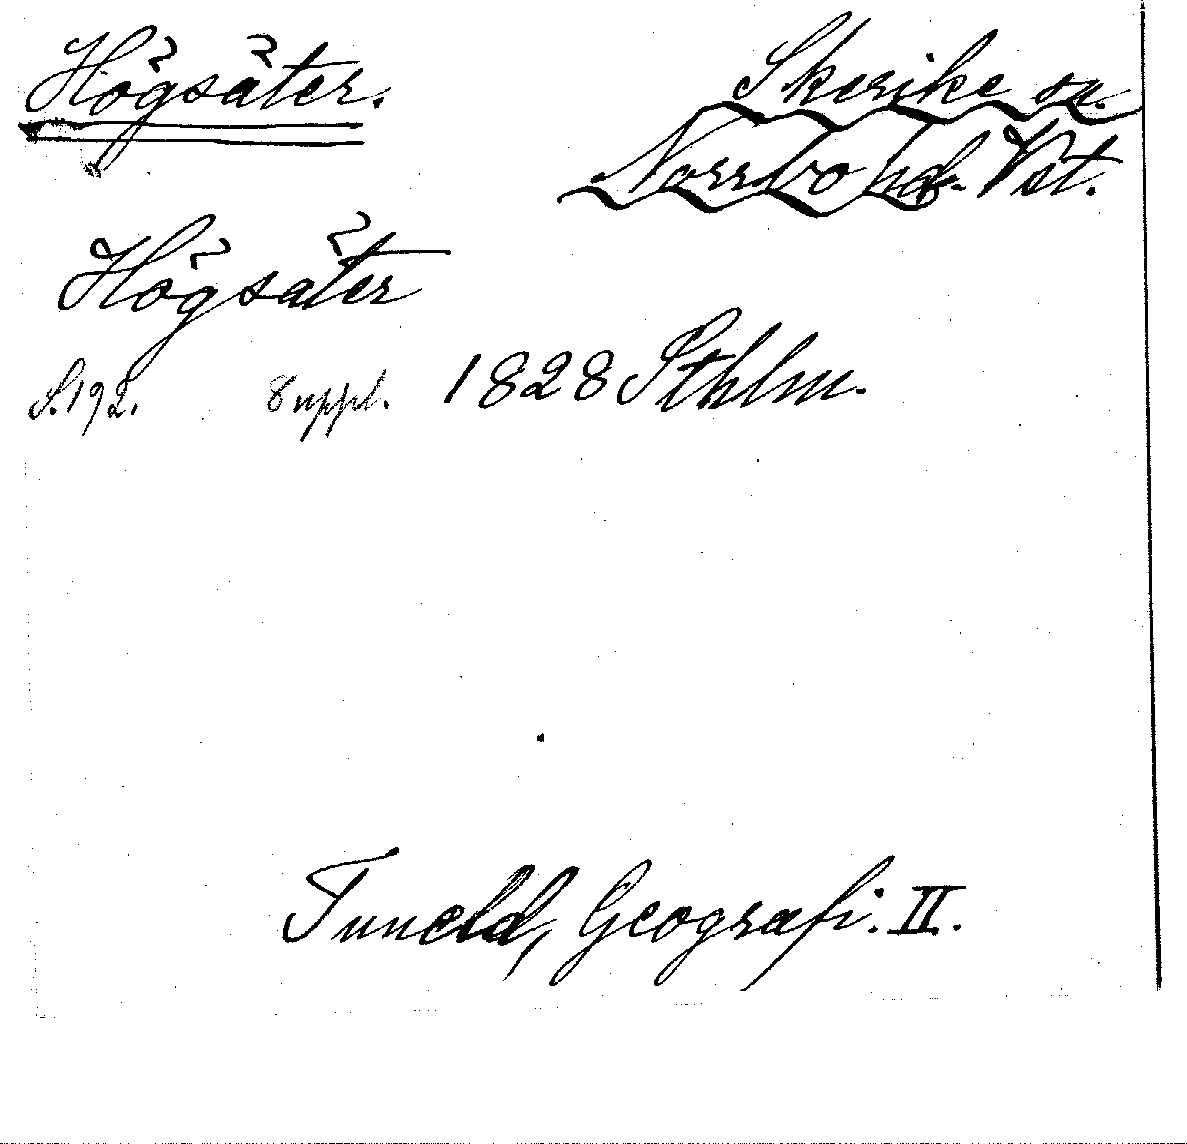 Högsäter.
Skerike sn.
Norrbo hd. Vst.
Högsäter
S.192. 8 uppl. 1828 Sthlm.
Tuneld, Geografi. II.